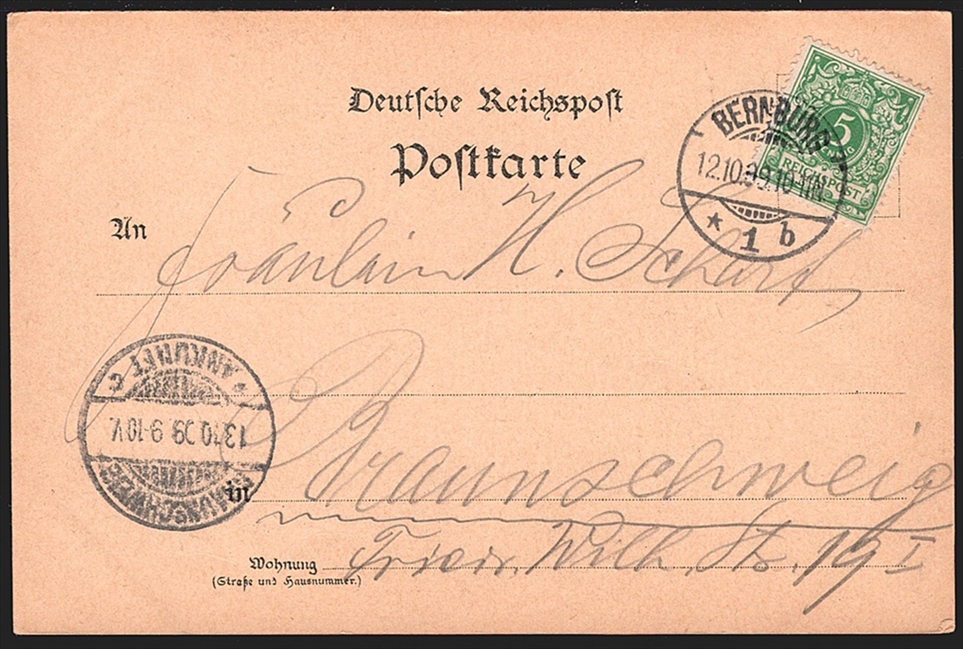 Deutsche Reichspost
Postkarte
5
REICHSPOST
BERNBURG
12.10.99.10-11N
* 1 b
An
Fräulein H. Scharf,
* ANKUNFT C
13.10.99 9-10V.
BRAUNSCHWEIG
in
Braunschweig
Wohnung
(Straße und Hausnummer.)
Friedr. Wilh. Str. 19 I